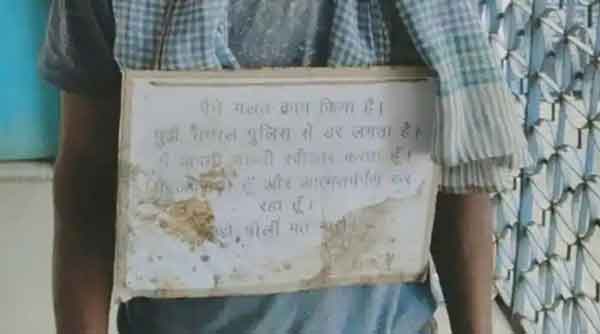 मैंने गलत काम किया है।
मुझे सम्भल पुलिस से डर लगता है।
मैं अपनी गलती स्वीकार करता हूँ।
हूँ और आत्मसमर्पण कर
रहा हूँ।
गोली मत